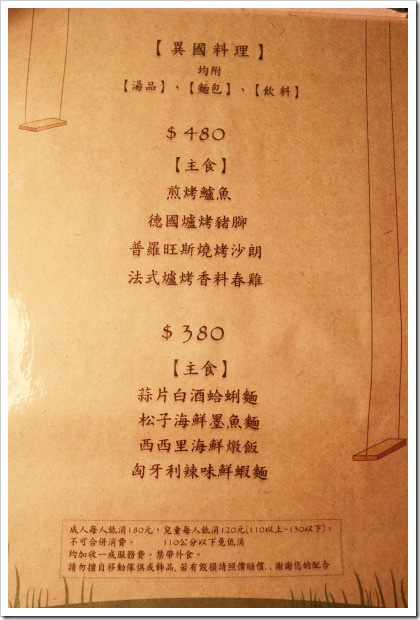 【異國料理】
均附
【湯品】、【麵包】、【飲料】
$480
【主食】
煎烤鱸魚
德國爐烤豬腳
普羅旺斯燒烤沙朗
法式爐烤香料春雞
$380
【主食】
蒜片白酒蛤蜊麵
松子海鮮墨魚麵
西西里海鮮燉飯
匈牙利辣味鮮蝦麵
成人每人低消180元，兒童每人低消120元(110以上-130以下)。
不可合併消費。 110公分以下免低消
均加收一成服務費。禁帶外食。
請勿擅自移動傢俱或飾品,若有毀損請照價賠償..謝謝您的配合